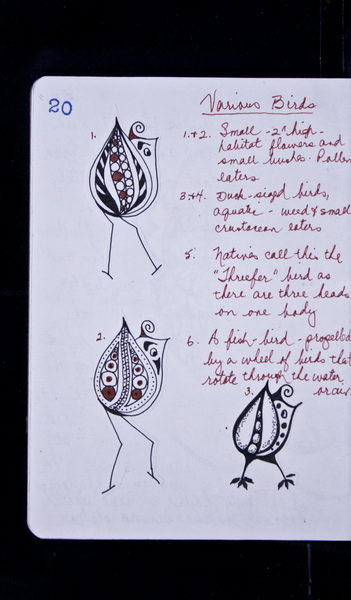 20
Various Birds
1.
1.+2. Small - 2" high -
habitat flowers and
small bushes. Pollen
eaters
3.+4. Duck-sized birds,
aquatic - weed & small
crustacean eaters
5. Natives call this the
"Threefer" bird as
there are three heads
on one body
2.
6. A fish-bird - propelled
by a wheel of birds that
rotate through the water
3.